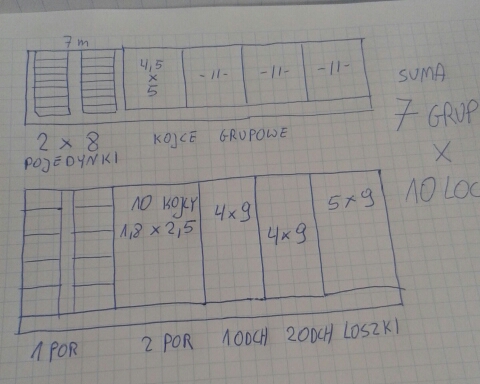 7 m
4,5
x
5
-11-
-11-
-11-
2 x 8
POJEDYNKI
KOJCE GRUPOWE
SUMA
7 GRUP
X
10 LOC
10 KOJCY
1,8 x 2,5
4x9
4x9
5x9
1 POR
2 POR
1 ODCH
2 ODCH
LOSZKI